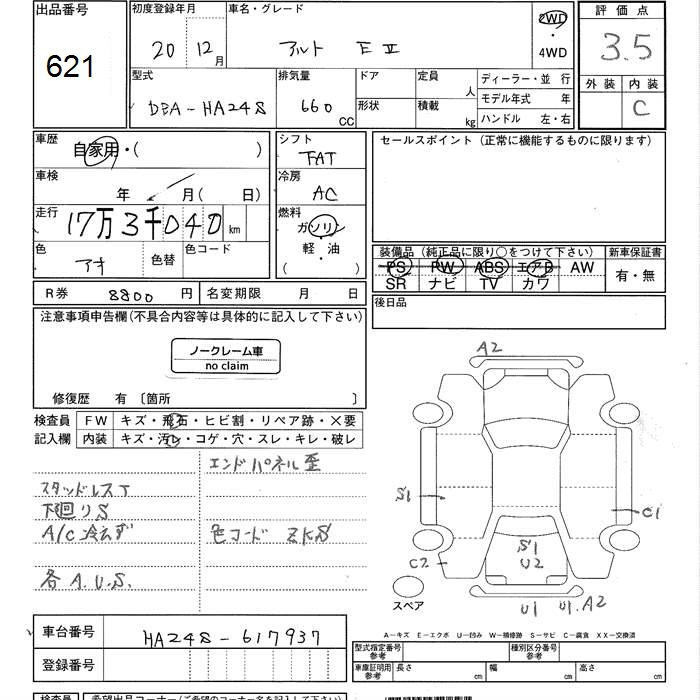 出品番号
621
初度登録年月
20 12月
車名・グレード
アルト EⅡ
2WD
・
4WD
評価点
3.5
外装 内装
C
型式
DBA-HA24S
排気量
660 CC
ドア
形状
定員 人
積載 kg
ディーラー・並行
モデル年式 年
ハンドル 左・右
車歴
自家用・( )
車検
年 月( 日)
走行
17万3千040 km
色
アオ
色替
色コード
シフト
FAT
冷房
AC
燃料
ガソリン
軽・油
( )
セールスポイント(正常に機能するものに限ります)
装備品(純正品に限り○をつけて下さい)
PS PW ABS エアB AW
SR ナビ TV カワ
新車保証書
有・無
後日品
R券 8800 円
名変期限 月 日
注意事項申告欄(不具合内容等は具体的に記入して下さい)
ノークレーム車
no claim
修復歴 有〔箇所 〕
検査員
記入欄
FW キズ・飛石・ヒビ割・リペア跡・×要
内装 キズ・汚レ・コゲ・穴・スレ・キレ・破レ
エンドパネル歪
スタッドレスT
下廻りS
A/C冷えず
色コード ZKS
各A.U.S.
A2
S1
C1
S1
U2
C2
U1
U1.A2
スペア
車台番号 HA24S-617937
登録番号
A-キズ E-エクボ U-凹み W-補修跡 S-サビ C-腐食 XX-交換済
型式指定番号
参考
種別区分番号
参考
車庫証明用
参考
長さ cm
幅 cm
高さ cm
検査員
希望出品コーナー(ご希望のコーナー名を記入して下さい)